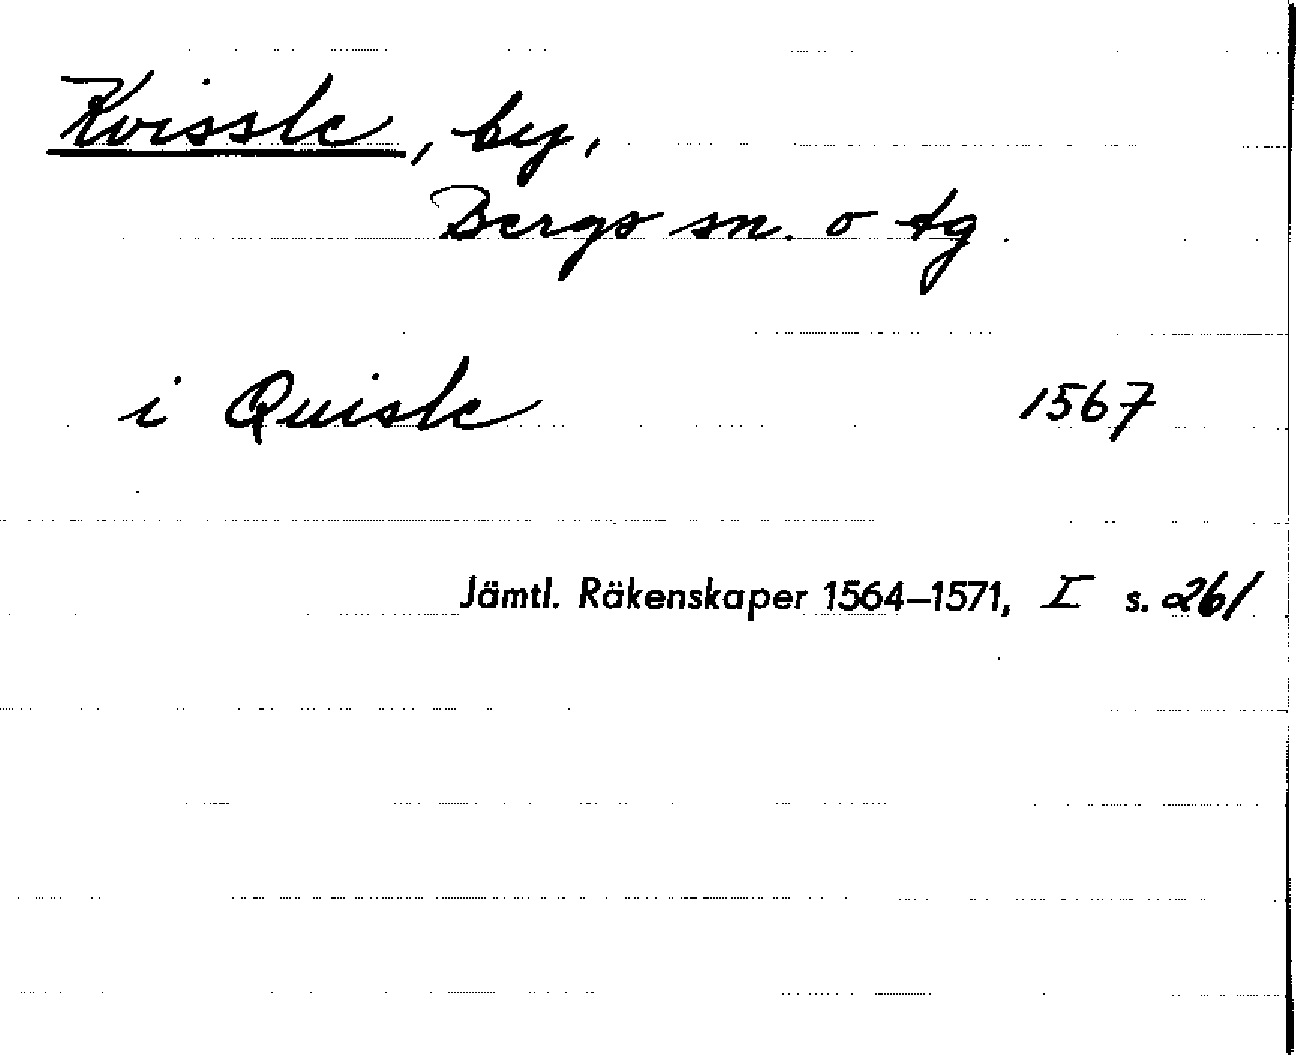 Kvissle, by,
Bergs sn. o tg.
i Quisle 1567
Jämtl. Räkenskaper 1564–1571, I s. 261